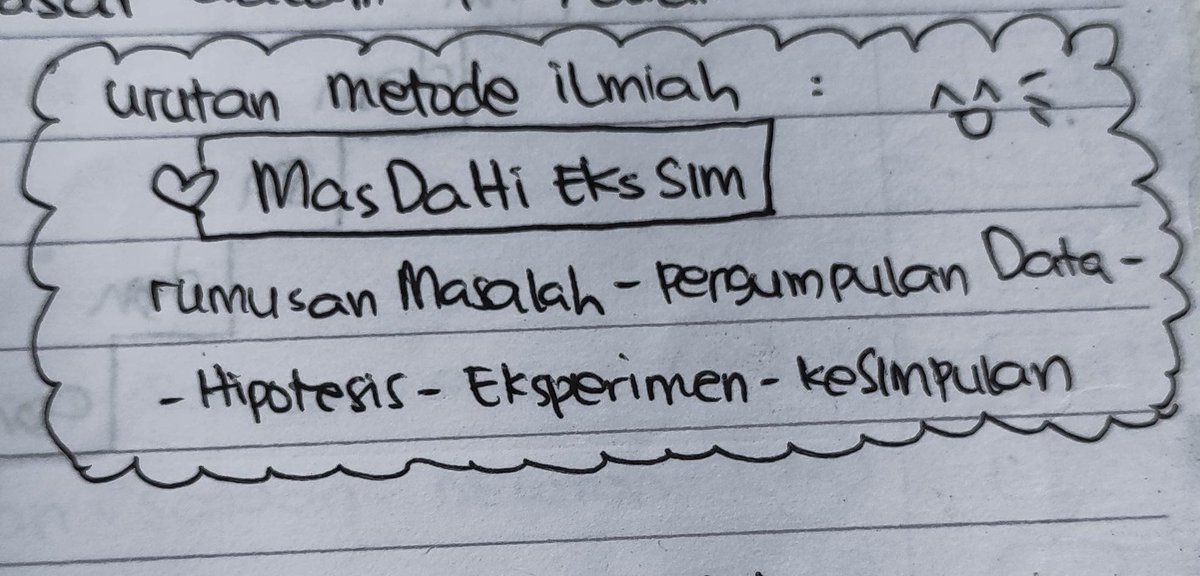 urutan metode ilmiah :
♡ MasDaHi EksSim
rumusan Masalah - Pengumpulan Data -
- Hipotesis - Eksperimen - keSimpulan